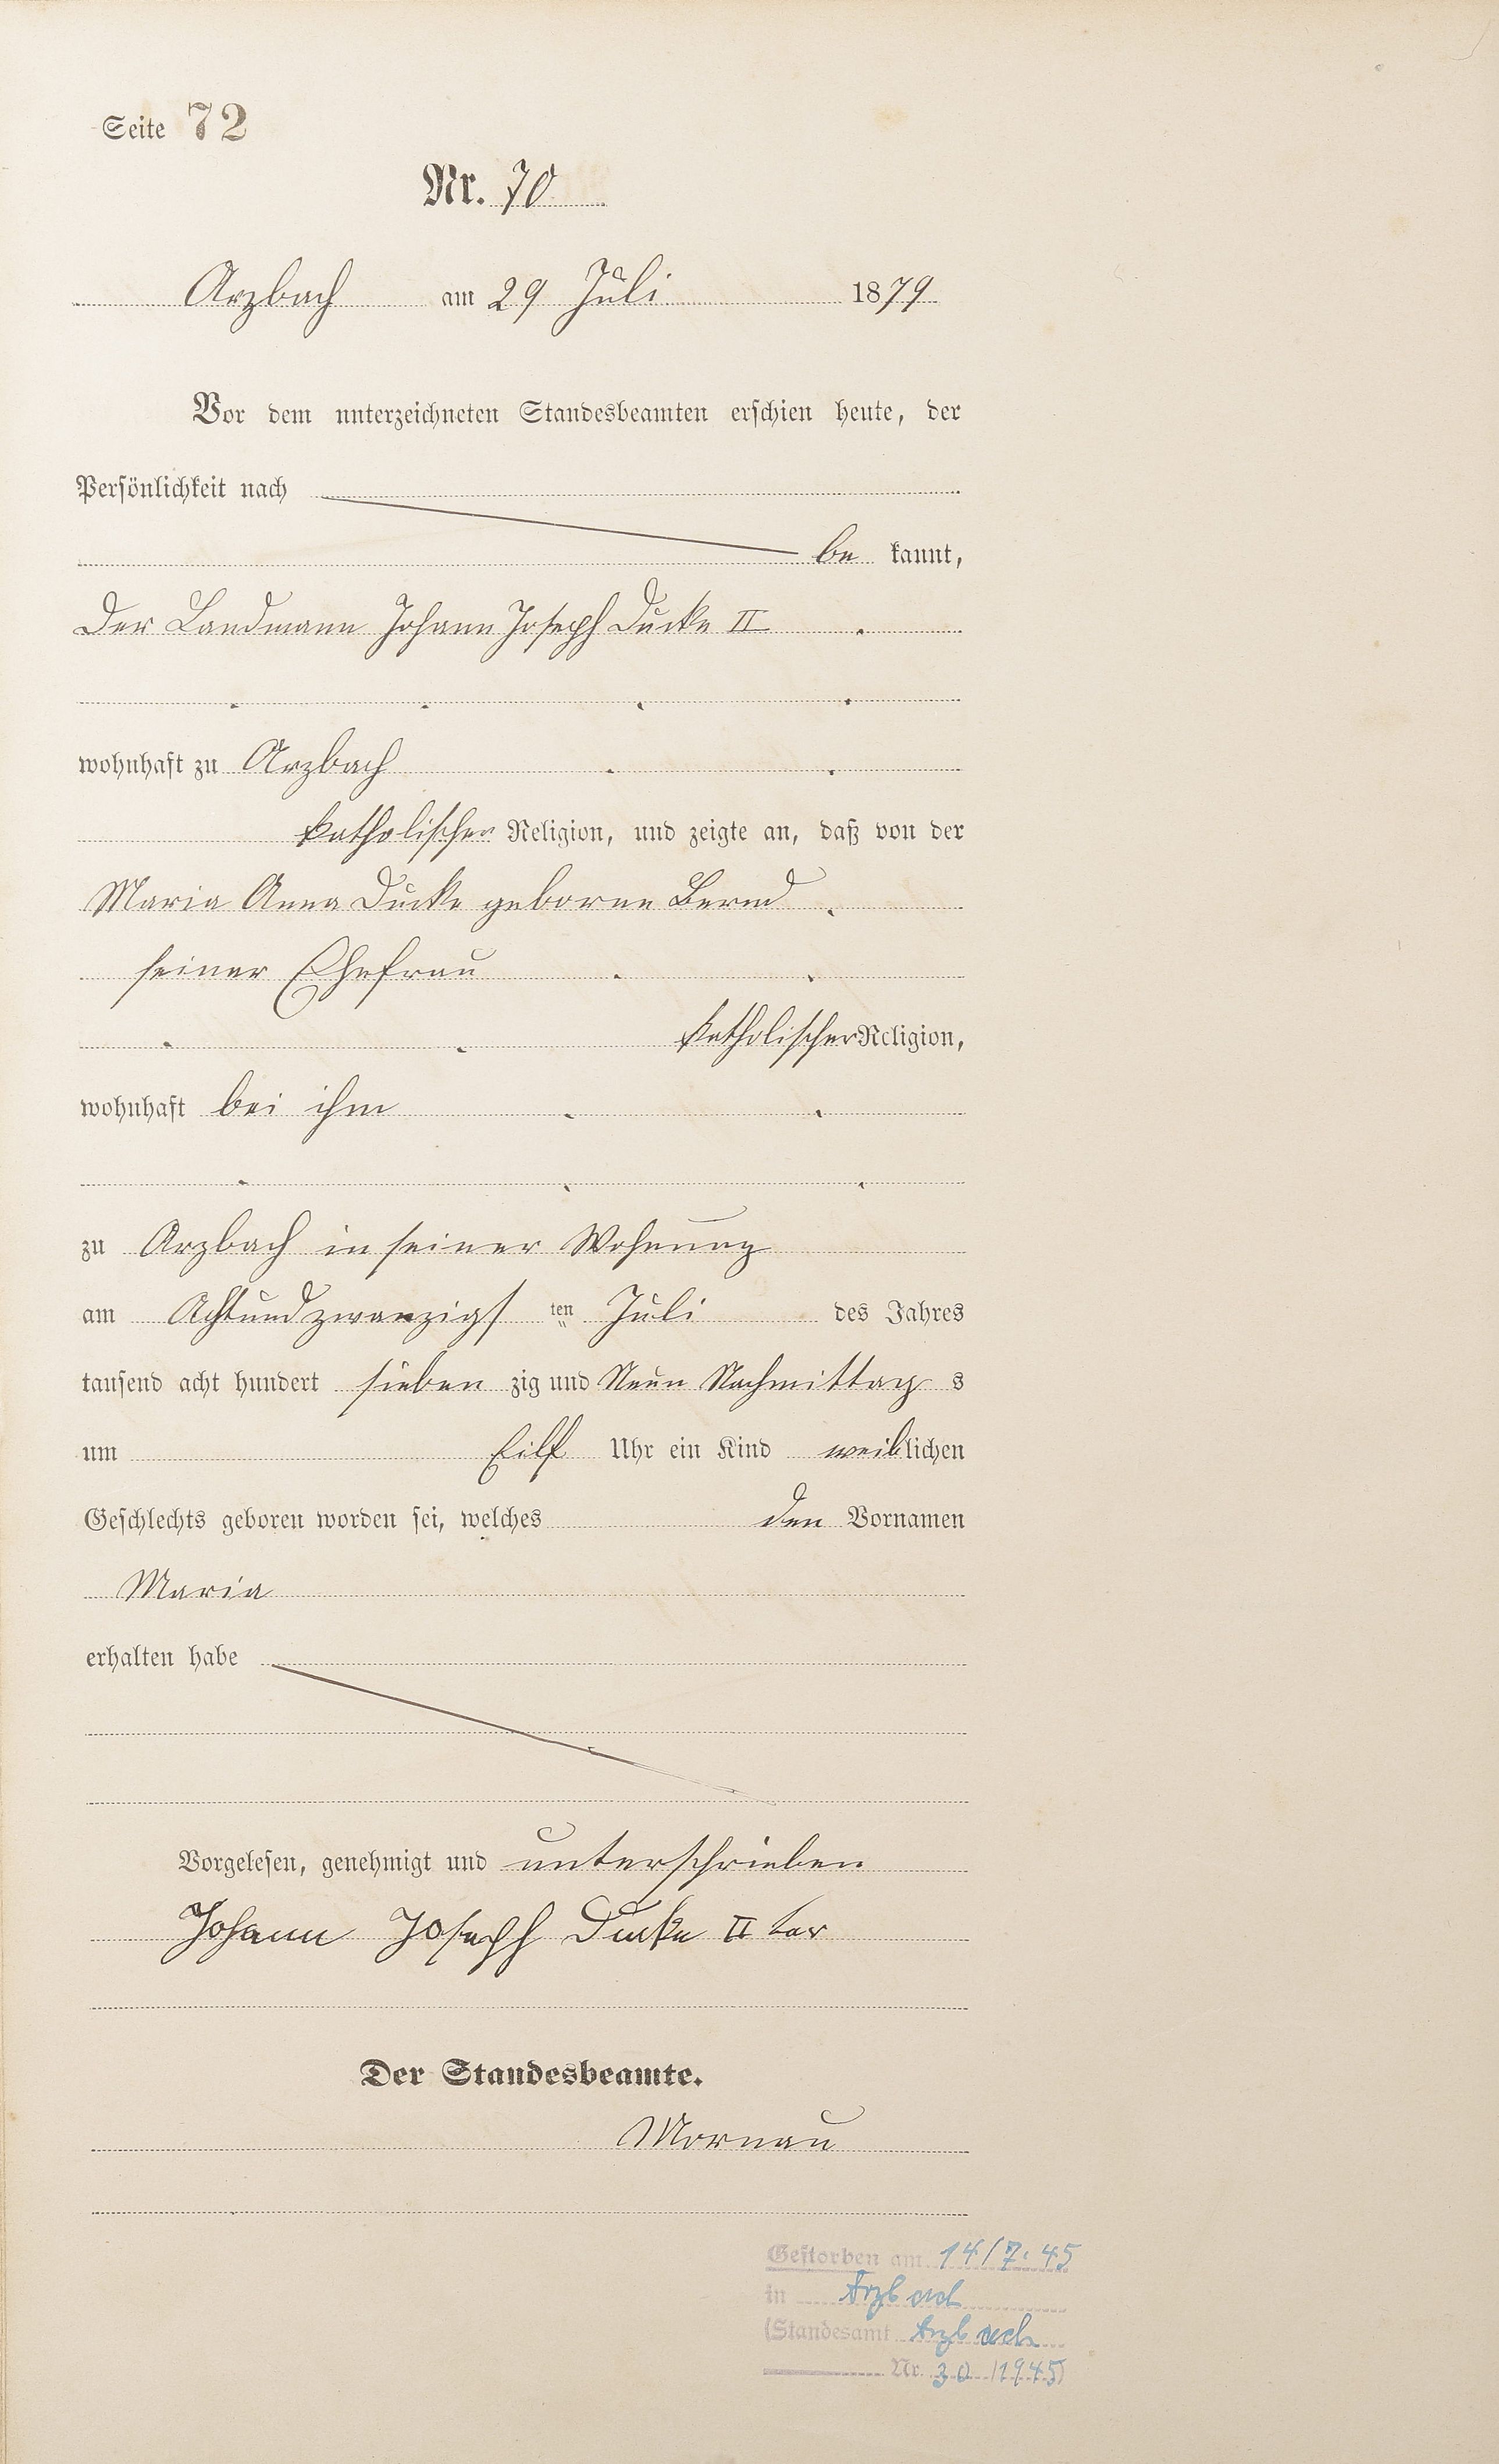 Seite 72
Nr. 70
Arzbach am 29 Juli 1879
Vor dem unterzeichneten Standesbeamten erschien heute, der
Persönlichkeit nach
be kannt,
Der Landmann Johann Joseph Ducke II
wohnhaft zu Arzbach
katholischer Religion, und zeigte an, daß von der
Maria Anna Ducke geborne Bernd
seiner Ehefrau
katholischer Religion,
wohnhaft bei ihm
zu Arzbach in seiner Wohnung
am Achtundzwanzigsten Juli des Jahres
tausend acht hundert sieben zig und Neun Nachmittag s
um Eilf Uhr ein Kind weiblichen
Geschlechts geboren worden sei, welches den Vornamen
Maria
erhalten habe
Vorgelesen, genehmigt und unterschrieben
Johann Joseph Ducke II ter
Der Standesbeamte.
Mornau
Gestorben am 14/7. 45
in Arzbach
(Standesamt Arzbach
Nr. 30 /1945)